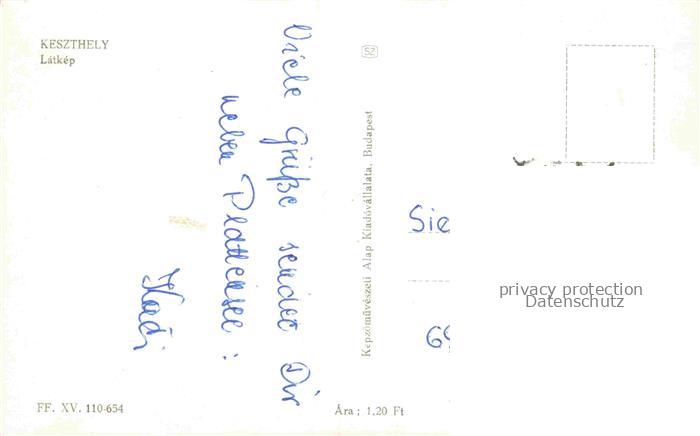 KESZTHELY
Látkép
Viele Grüße sendet Dir
neben Plattensee:
SZ
Képzőművészeti Alap Kiadóvállalata, Budapest
Sie
privacy protection
Datenschutz
FF. XV. 110-654
Ára: 1,20 Ft